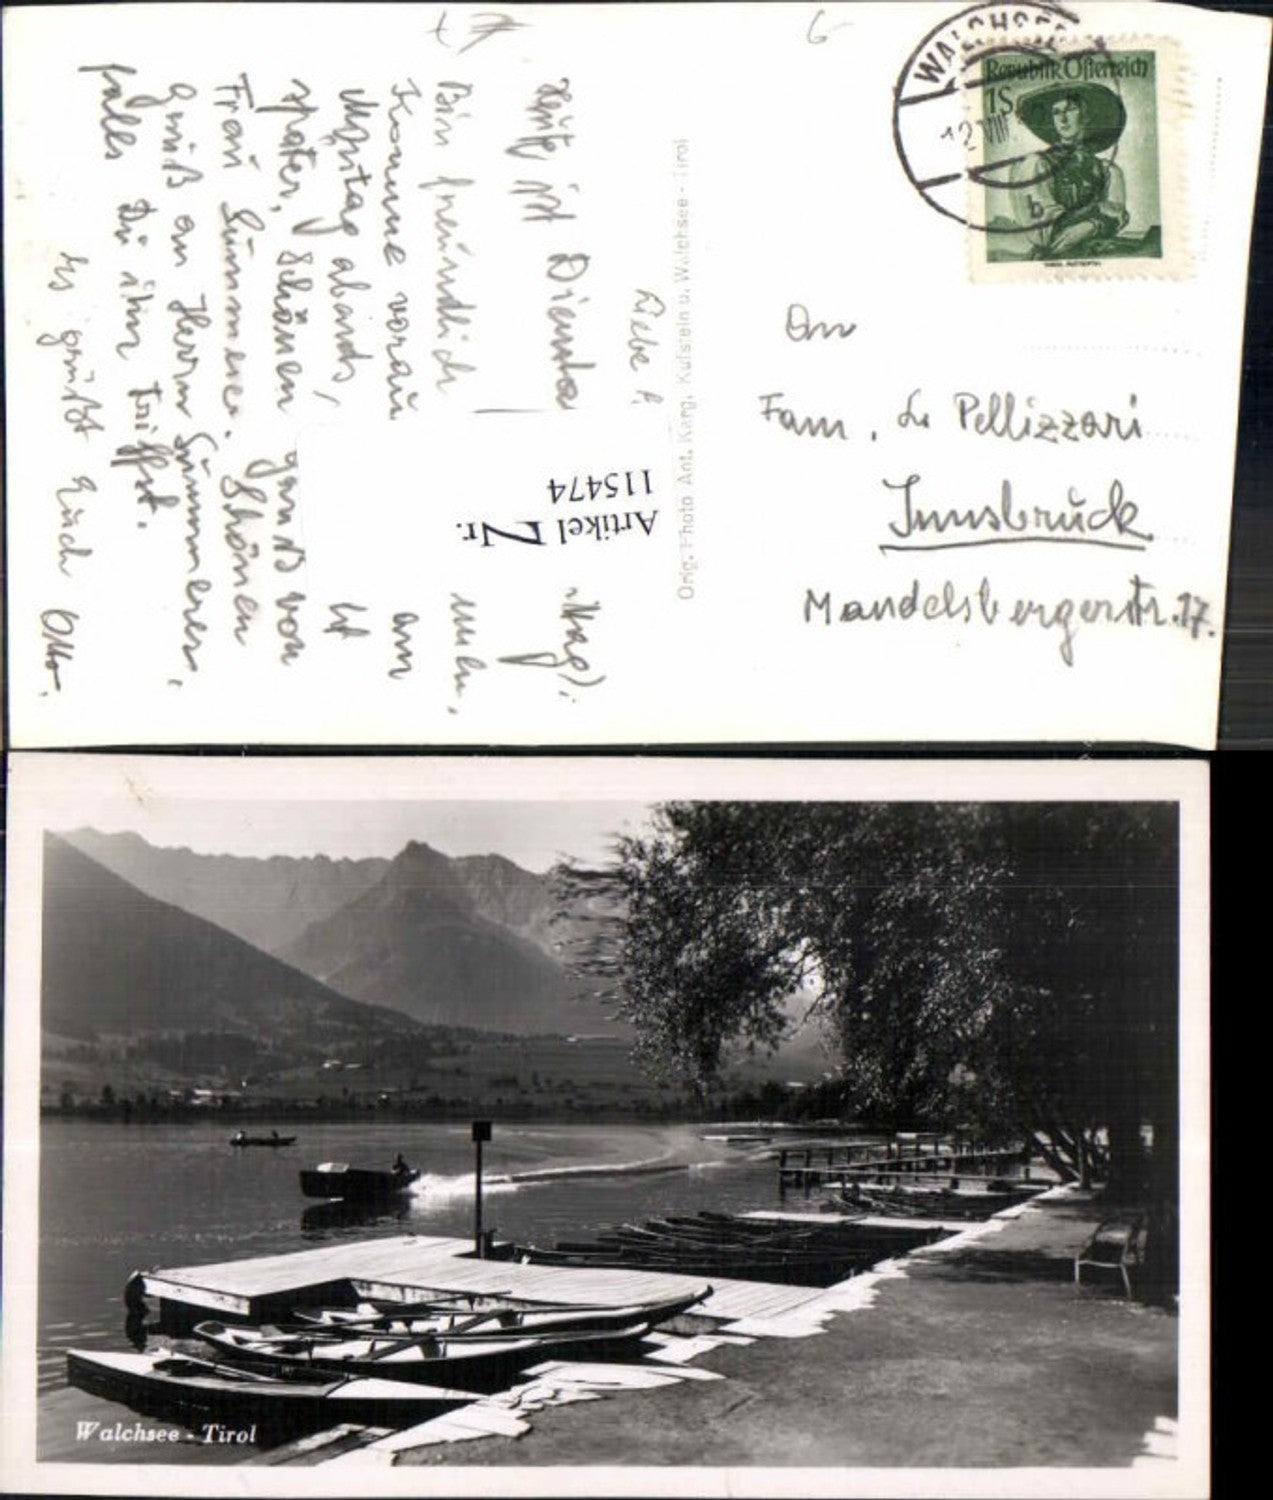 WALCHSEE
Republik Österreich
1S
12. VIII
b
An
Fam. De Pellizzari
Innsbruck
Mandelsbergerstr. 17.
Orig. Photo Ant. Karg, Kufstein u. Walchsee - Tirol
Artikel Nr.
115474
Liebe
Heute ist Diensta
Bin freundlich
Komme vorau am
Montag abends,
später, schönen gruß von
Frau Summerer. Schönen
gruß an Herrn Summerer,
falls Du ihn triffst.
Es grüßt Euch Otto.
Walchsee - Tirol